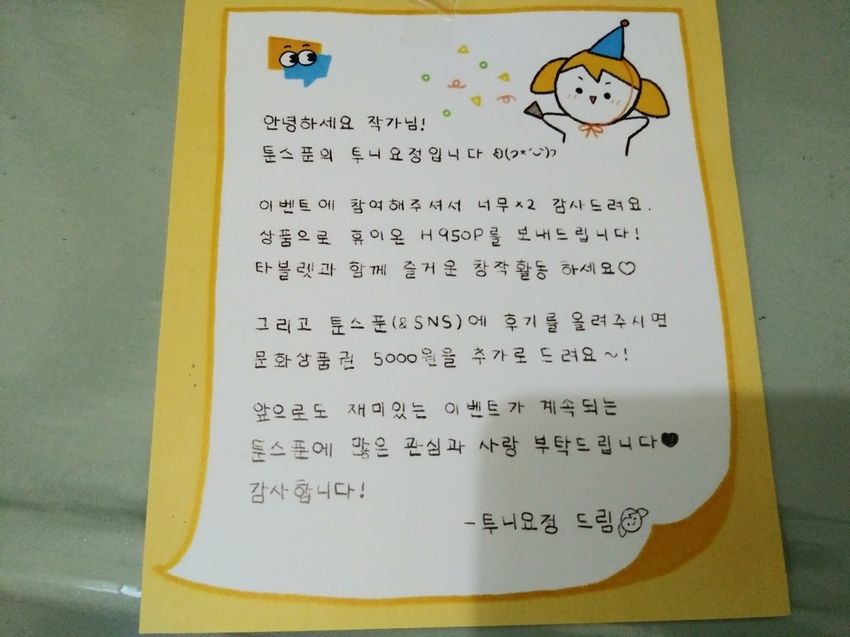 안녕하세요 작가님!
툰스푼의 투니요정입니다 ʚ(ɔ*´ᵕ`)ɔ
이벤트에 참여해주셔서 너무×2 감사드려요.
상품으로 휴이온 H950P를 보내드립니다!
타블렛과 함께 즐거운 창작활동 하세요♡
그리고 툰스푼(&SNS)에 후기를 올려주시면
문화상품권 5000원을 추가로 드려요~!
앞으로도 재미있는 이벤트가 계속되는
툰스푼에 많은 관심과 사랑 부탁드립니다♥
감사합니다!
-투니요정 드림